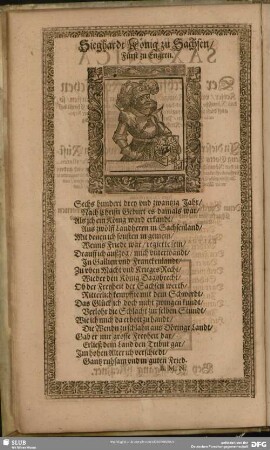 Sieghardt König zu Sachsen/
Fürst zu Engern.
Sechs hundert drey vnd zwantzig Jahr/
Nach Christi Geburt es damals war/
Als ich ein König ward erkandt/
Aus zwölff Landherrn in Sachsenland/
Mit denen ich sonsten in gemein/
Wenns Friede war/
Drauff ich
In Gallien vnd Franckenlandt/
Zu vben Macht vnd Krieges Recht/
Wieder den König Dagobrecht/
Ob der Freyheit der Sachsen werth/
Ritterlich kempffte mit dem Schwerdt/
Das Glück ich doch nicht zwingen kundt/
Verlohr die Schlacht zur selben Stundt/
Wie ich mich da erholt zu handt/
Die Wenden zu schlahn aus Döringr Landt/
Gab er mir grosse Freyheit dar/
Erließ dem Land den Tribut gar/
Im hohen Alter ich verschiedt/
Gantz ruhsam vnd in guten Fried.
SLUB